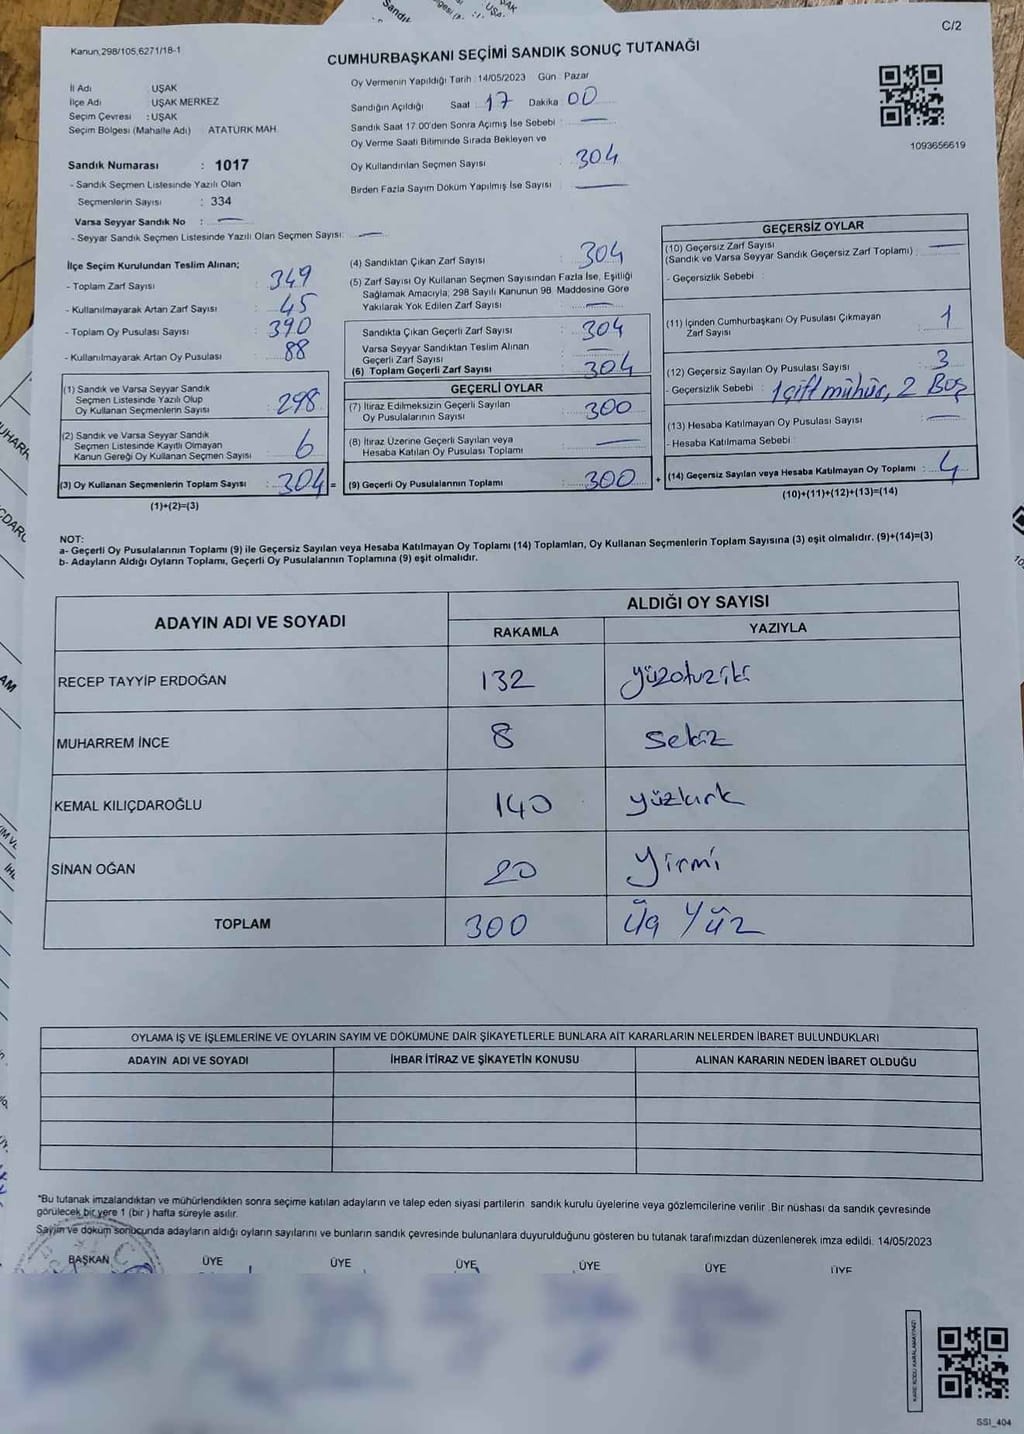 C/2
Kanun,298/105,6271/18-1
CUMHURBAŞKANI SEÇİMİ SANDIK SONUÇ TUTANAĞI
İl Adı UŞAK
İlçe Adı UŞAK MERKEZ
Seçim Çevresi : UŞAK
Seçim Bölgesi (Mahalle Adı) ATATÜRK MAH.
Sandık Numarası : 1017
- Sandık Seçmen Listesinde Yazılı Olan
Seçmenlerin Sayısı : 334
Varsa Seyyar Sandık No : —
- Seyyar Sandık Seçmen Listesinde Yazılı Olan Seçmen Sayısı: —
Oy Vermenin Yapıldığı Tarih : 14/05/2023 Gün : Pazar
Sandığın Açıldığı Saat 17 Dakika 00
Sandık Saat 17:00'den Sonra Açımış İse Sebebi : —
Oy Verme Saati Bitiminde Sırada Bekleyen ve
Oy Kullandırılan Seçmen Sayısı : 304
Birden Fazla Sayım Döküm Yapılmış İse Sayısı : —
1093656619
İlçe Seçim Kurulundan Teslim Alınan;
- Toplam Zarf Sayısı : 349
- Kullanılmayarak Artan Zarf Sayısı : 45
- Toplam Oy Pusulası Sayısı : 390
- Kullanılmayarak Artan Oy Pusulası : 88
(1) Sandık ve Varsa Seyyar Sandık
Seçmen Listesinde Yazılı Olup
Oy Kullanan Seçmenlerin Sayısı : 298
(2) Sandık ve Varsa Seyyar Sandık
Seçmen Listesinde Kayıtlı Olmayan
Kanun Gereği Oy Kullanan Seçmen Sayısı : 6
(3) Oy Kullanan Seçmenlerin Toplam Sayısı : 304 =
(1)+(2)=(3)
(4) Sandıktan Çıkan Zarf Sayısı : 304
(5) Zarf Sayısı Oy Kullanan Seçmen Sayısından Fazla İse, Eşitliği
Sağlamak Amacıyla; 298 Sayılı Kanunun 98. Maddesine Göre
Yakılarak Yok Edilen Zarf Sayısı : —
Sandıkta Çıkan Geçerli Zarf Sayısı : 304
Varsa Seyyar Sandıktan Teslim Alınan
Geçerli Zarf Sayısı : —
(6) Toplam Geçerli Zarf Sayısı : 304
GEÇERLİ OYLAR
(7) İtiraz Edilmeksizin Geçerli Sayılan
Oy Pusulalarının Sayısı : 300
(8) İtiraz Üzerine Geçerli Sayılan veya
Hesaba Katılan Oy Pusulası Toplamı : —
(9) Geçerli Oy Pusulalarının Toplamı : 300 +
GEÇERSİZ OYLAR
(10) Geçersiz Zarf Sayısı
(Sandık ve Varsa Seyyar Sandık Geçersiz Zarf Toplamı) : —
- Geçersizlik Sebebi :
(11) İçinden Cumhurbaşkanı Oy Pusulası Çıkmayan
Zarf Sayısı : 1
(12) Geçersiz Sayılan Oy Pusulası Sayısı : 3
- Geçersizlik Sebebi : 1 çift mühür, 2 Boş
(13) Hesaba Katılmayan Oy Pusulası Sayısı : —
- Hesaba Katılmama Sebebi :
(14) Geçersiz Sayılan veya Hesaba Katılmayan Oy Toplamı : 4
(10)+(11)+(12)+(13)=(14)
NOT:
a- Geçerli Oy Pusulalarının Toplamı (9) ile Geçersiz Sayılan veya Hesaba Katılmayan Oy Toplamı (14) Toplamları, Oy Kullanan Seçmenlerin Toplam Sayısına (3) eşit olmalıdır. (9)+(14)=(3)
b- Adayların Aldığı Oyların Toplamı, Geçerli Oy Pusulalarının Toplamına (9) eşit olmalıdır.
ADAYIN ADI VE SOYADI ALDIĞI OY SAYISI
RAKAMLA YAZIYLA
RECEP TAYYİP ERDOĞAN 132 yüzotuziki
MUHARREM İNCE 8 Sekiz
KEMAL KILIÇDAROĞLU 140 yüzkırk
SİNAN OĞAN 20 Yirmi
TOPLAM 300 Üç Yüz
OYLAMA İŞ VE İŞLEMLERİNE VE OYLARIN SAYIM VE DÖKÜMÜNE DAİR ŞİKAYETLERLE BUNLARA AİT KARARLARIN NELERDEN İBARET BULUNDUKLARI
ADAYIN ADI VE SOYADI İHBAR İTİRAZ VE ŞİKAYETİN KONUSU ALINAN KARARIN NEDEN İBARET OLDUĞU
"Bu tutanak imzalandıktan ve mühürlendikten sonra seçime katılan adayların ve talep eden siyasi partilerin sandık kurulu üyelerine veya gözlemcilerine verilir. Bir nüshası da sandık çevresinde
görülecek bir yere 1 (bir) hafta süreyle asılır.
Sayım ve döküm sonucunda adayların aldığı oyların sayılarını ve bunların sandık çevresinde bulunanlara duyurulduğunu gösteren bu tutanak tarafımızdan düzenlenerek imza edildi. 14/05/2023
BAŞKAN ÜYE ÜYE ÜYE ÜYE ÜYE ÜYE
KARE KODU KARALAMAYINIZ!
SSI_404